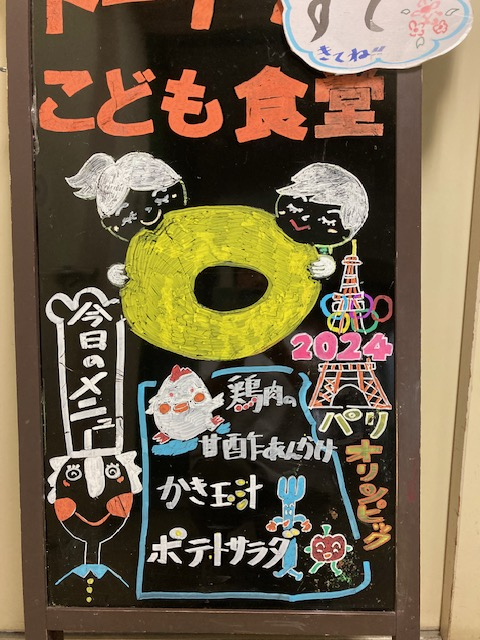 こども食堂
きてねッ
今日のメニュー
2024
パリ
オリンピック
鶏肉の
甘酢あんかけ
かき玉汁
ポテトサラダ